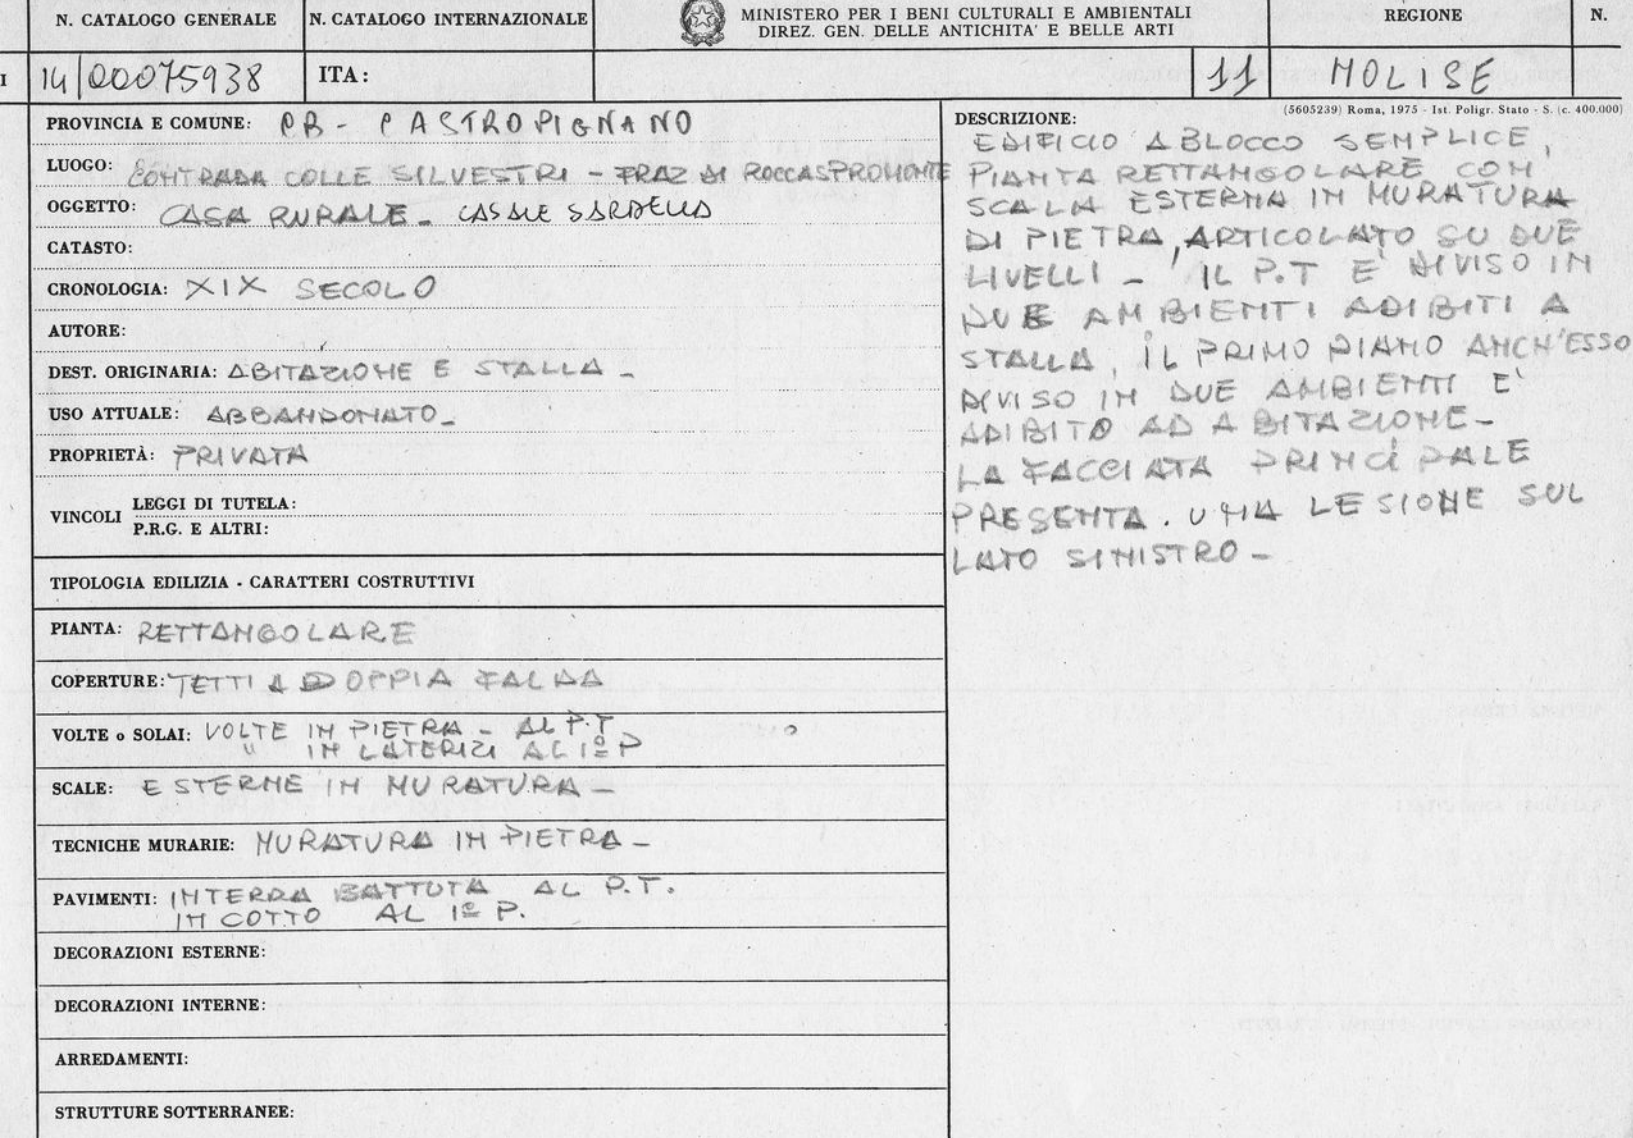 N. CATALOGO GENERALE
N. CATALOGO INTERNAZIONALE
MINISTERO PER I BENI CULTURALI E AMBIENTALI
DIREZ. GEN. DELLE ANTICHITA' E BELLE ARTI
REGIONE
N.
14/00075938
ITA:
11
MOLISE
(5605239) Roma, 1975 - Ist. Poligr. Stato - S. (c. 400.000)
PROVINCIA E COMUNE: CB - CASTROPIGNANO
LUOGO: CONTRADA COLLE SILVESTRI - FRAZ DI ROCCASPROMONTE
OGGETTO: CASA RURALE - CASALE SARDELLA
CATASTO:
CRONOLOGIA: XIX SECOLO
AUTORE:
DEST. ORIGINARIA: ABITAZIONE E STALLA -
USO ATTUALE: ABBANDONATO -
PROPRIETÀ: PRIVATA
VINCOLI
LEGGI DI TUTELA:
P.R.G. E ALTRI:
TIPOLOGIA EDILIZIA - CARATTERI COSTRUTTIVI
PIANTA: RETTANGOLARE
COPERTURE: TETTI A DOPPIA FALDA
VOLTE o SOLAI: VOLTE IN PIETRA - AL P.T
" IN LATERIZI AL 1º P
SCALE: ESTERNE IN MURATURA -
TECNICHE MURARIE: MURATURA IN PIETRA -
PAVIMENTI: IN TERRA BATTUTA AL P.T.
IN COTTO AL 1º P.
DECORAZIONI ESTERNE:
DECORAZIONI INTERNE:
ARREDAMENTI:
STRUTTURE SOTTERRANEE:
DESCRIZIONE:
EDIFICIO A BLOCCO SEMPLICE,
PIANTA RETTANGOLARE CON
SCALA ESTERNA IN MURATURA
DI PIETRA, ARTICOLATO SU DUE
LIVELLI - IL P.T E' DIVISO IN
DUE AMBIENTI ADIBITI A
STALLA, IL PRIMO PIANO ANCH'ESSO
DIVISO IN DUE AMBIENTI E'
ADIBITO AD ABITAZIONE -
LA FACCIATA PRINCIPALE
PRESENTA. UNA LESIONE SUL
LATO SINISTRO -